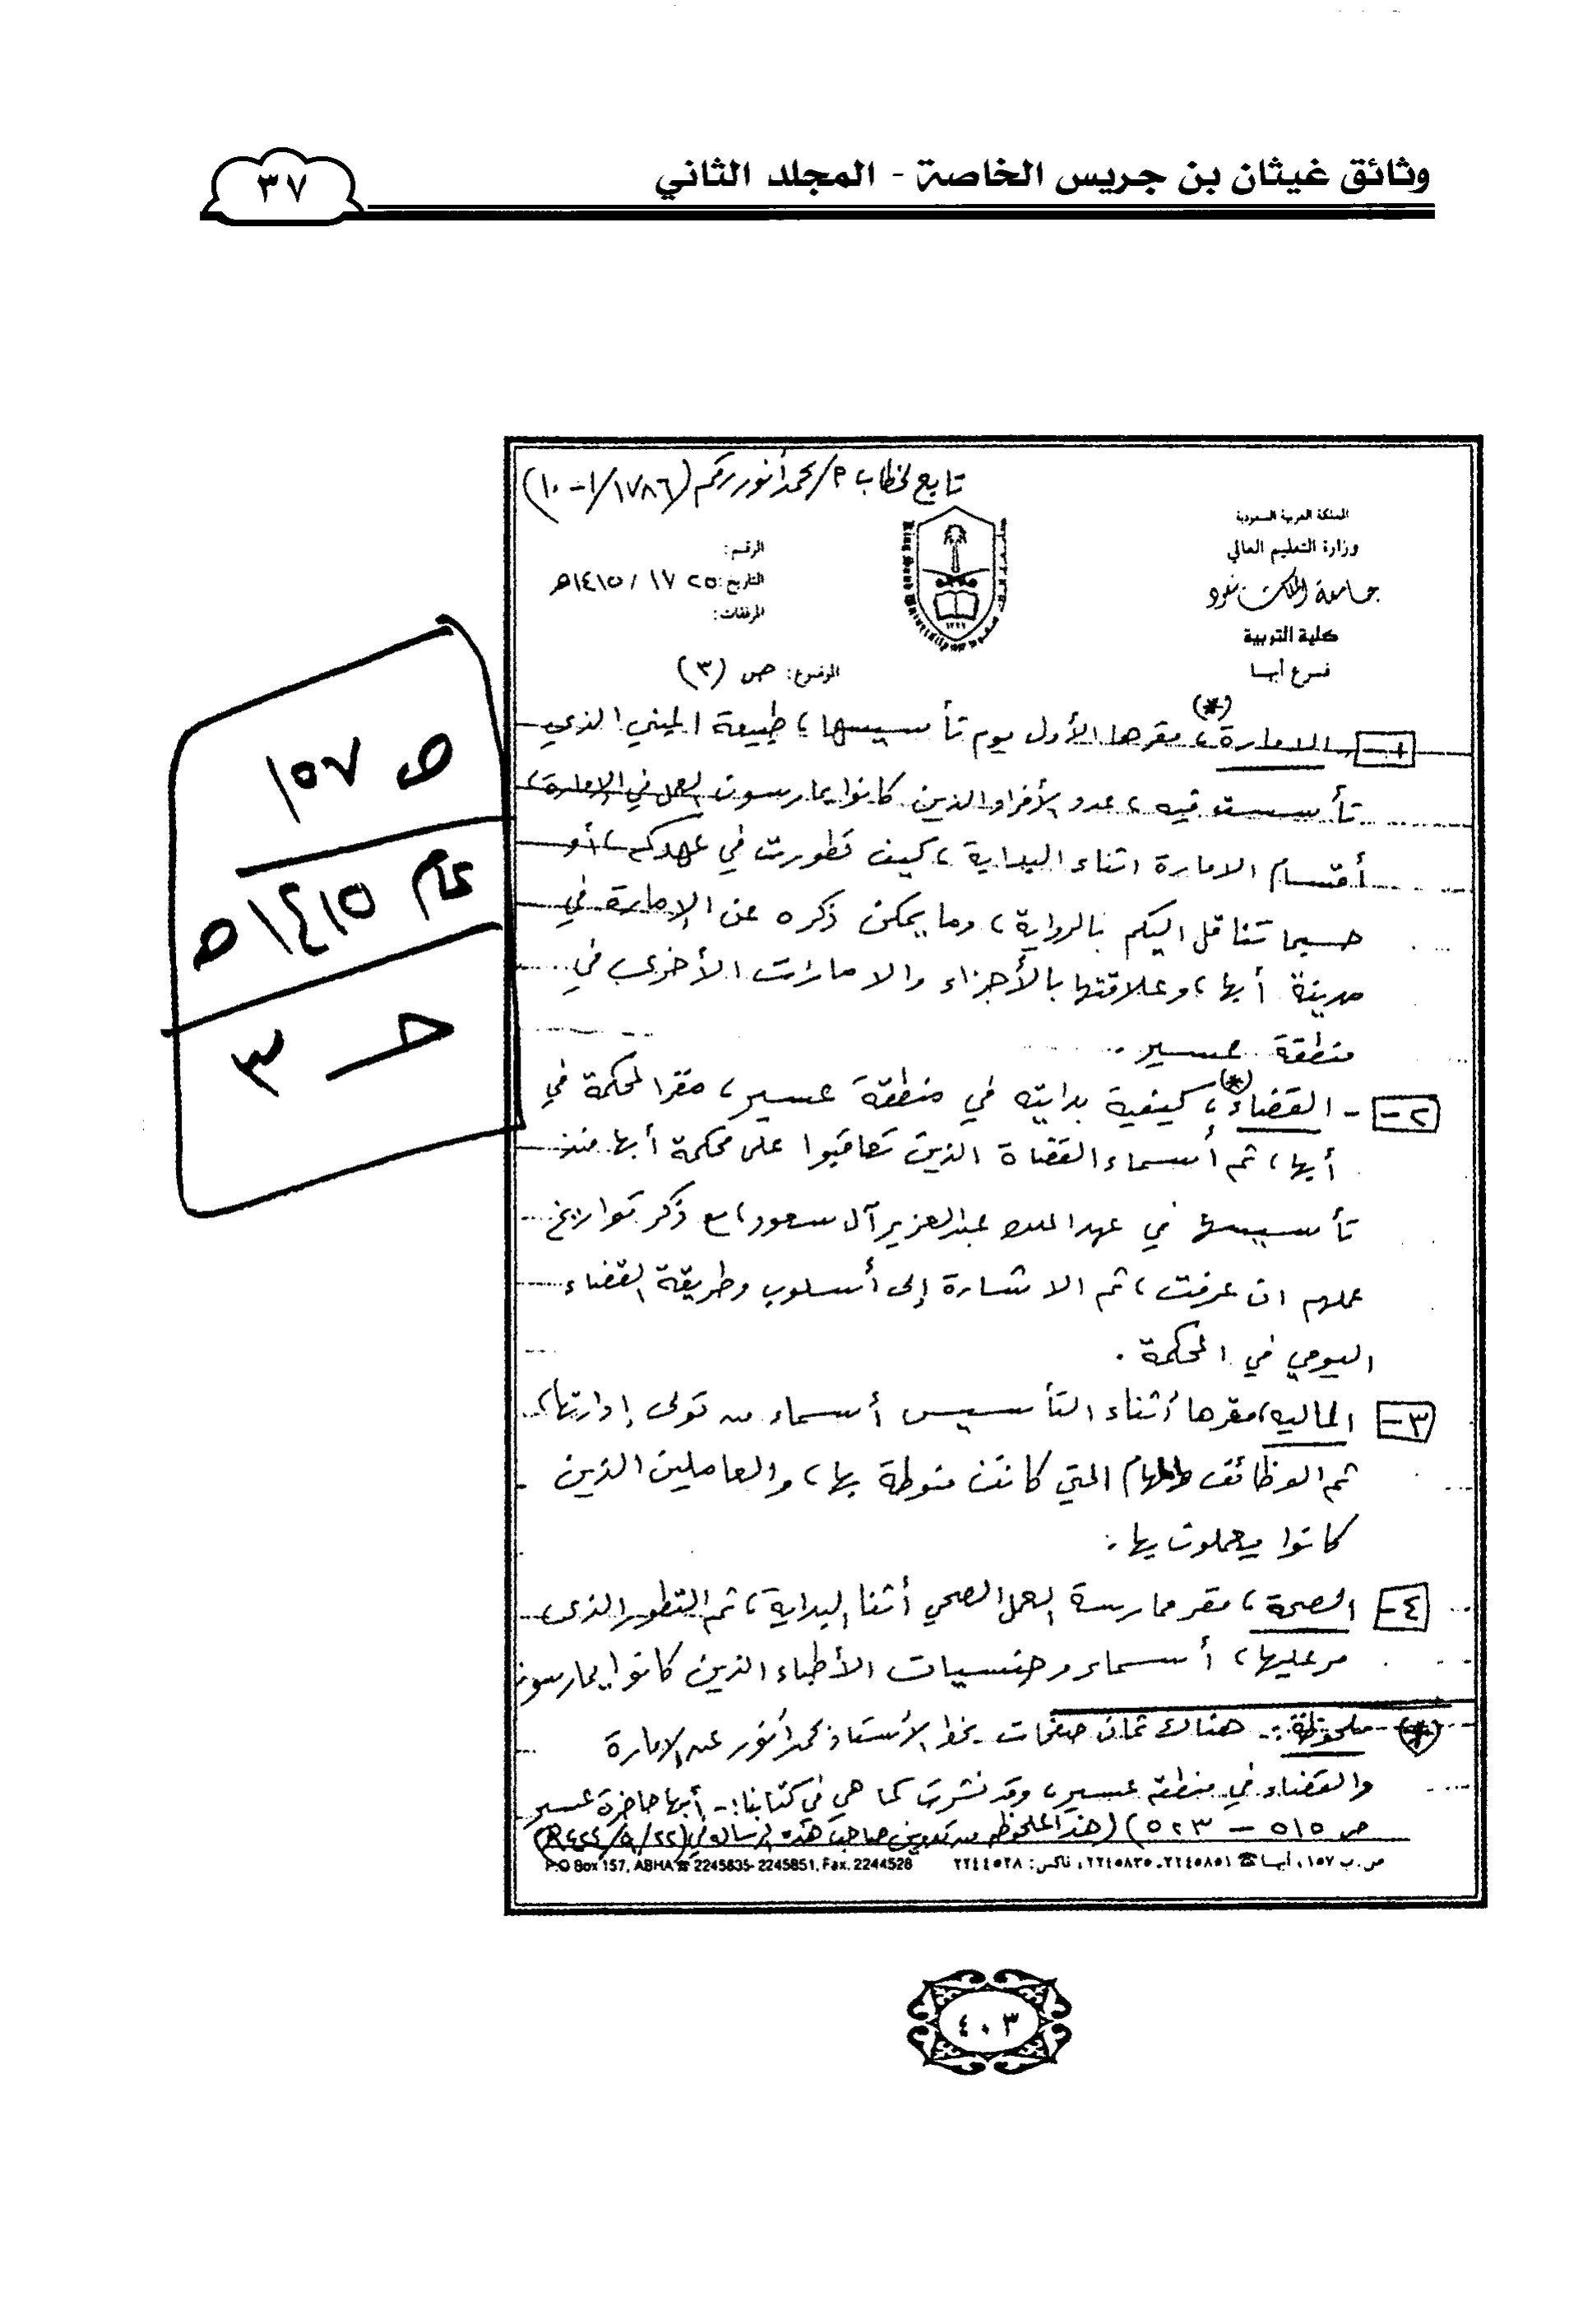 وثائق غيثان بن جريس الخاصة - المجلد الثاني
٣٧
تابع لخطاب م/محمد أنور رقم (١٠-١/١٧٨٦)
المملكة العربية السعودية
وزارة التعليم العالي
جامعة الملك سعود
كلية التربية
فرع أبها
الرقم:
التاريخ: ٢٥ / ٧ / ١٤١٥هـ
المرفقات:
الموضوع: ص (٣)
١- الامارة(*)، مقرها الأول يوم تأسيسها، طبيعة المبنى الذي
تأسست فيه، عدد الأفراد الذين كانوا يمارسون العمل في الإمارة،
أقسام الامارة اثناء البداية، كيف تطورت في عهدكم، أو
حسبما تناقل اليكم بالرواية، وما يمكن ذكره عن الإمارة في
مدينة أبها، وعلاقتها بالأجزاء والامارات الأخرى في
منطقة عسير.
٢- القضاء(*)، كيفية بدايته في منطقة عسير، مقر المحكمة في
أبها، ثم أسماء القضاة الذين تعاقبوا على محكمة أبها منذ
تأسيسها في عهد الملك عبدالعزيز آل سعود، مع ذكر تواريخ
عملهم ان عرفت، ثم الاشارة إلى أسلوب وطريقة القضاء
اليومي في المحكمة.
٣- الماليه، مقرها أثناء التأسيس أسماء من تولى إدارتها،
ثم الوظائف والمهام التي كانت منوطة بها، والعاملين الذين
كانوا يعملون بها.
٤- الصحة، مقر ممارسة العمل الصحي أثنا البداية، ثم التطور الذى
مر عليها، أسماء وجنسيات الأطباء الذين كانوا يمارسون
(*) ملحوظة:- هناك ثمان صفحات بخط الأستاذ محمد أنور عن الإمارة
والقضاء في منطقة عسير، وقد نشرت كما هي في كتابنا:- أبها حاضرة عسير
ص ٥١٥ - ٥٢٣) (هذه الملحوظه من تدوين صاحب هذه الرسالة في (٢٢/٩/١٤٢٤هـ)
P.O Box 157, ABHA ☎ 2245835- 2245851, Fax. 2244528
ص.ب ١٥٧، أبها ☎ ٢٢٤٥٨٥١ـ ٢٢٤٥٨٣٥، فاكس: ٢٢٤٤٥٢٨
ص ١٥٧
عام ١٤١٥هـ
حـ ٣
٤٠٣